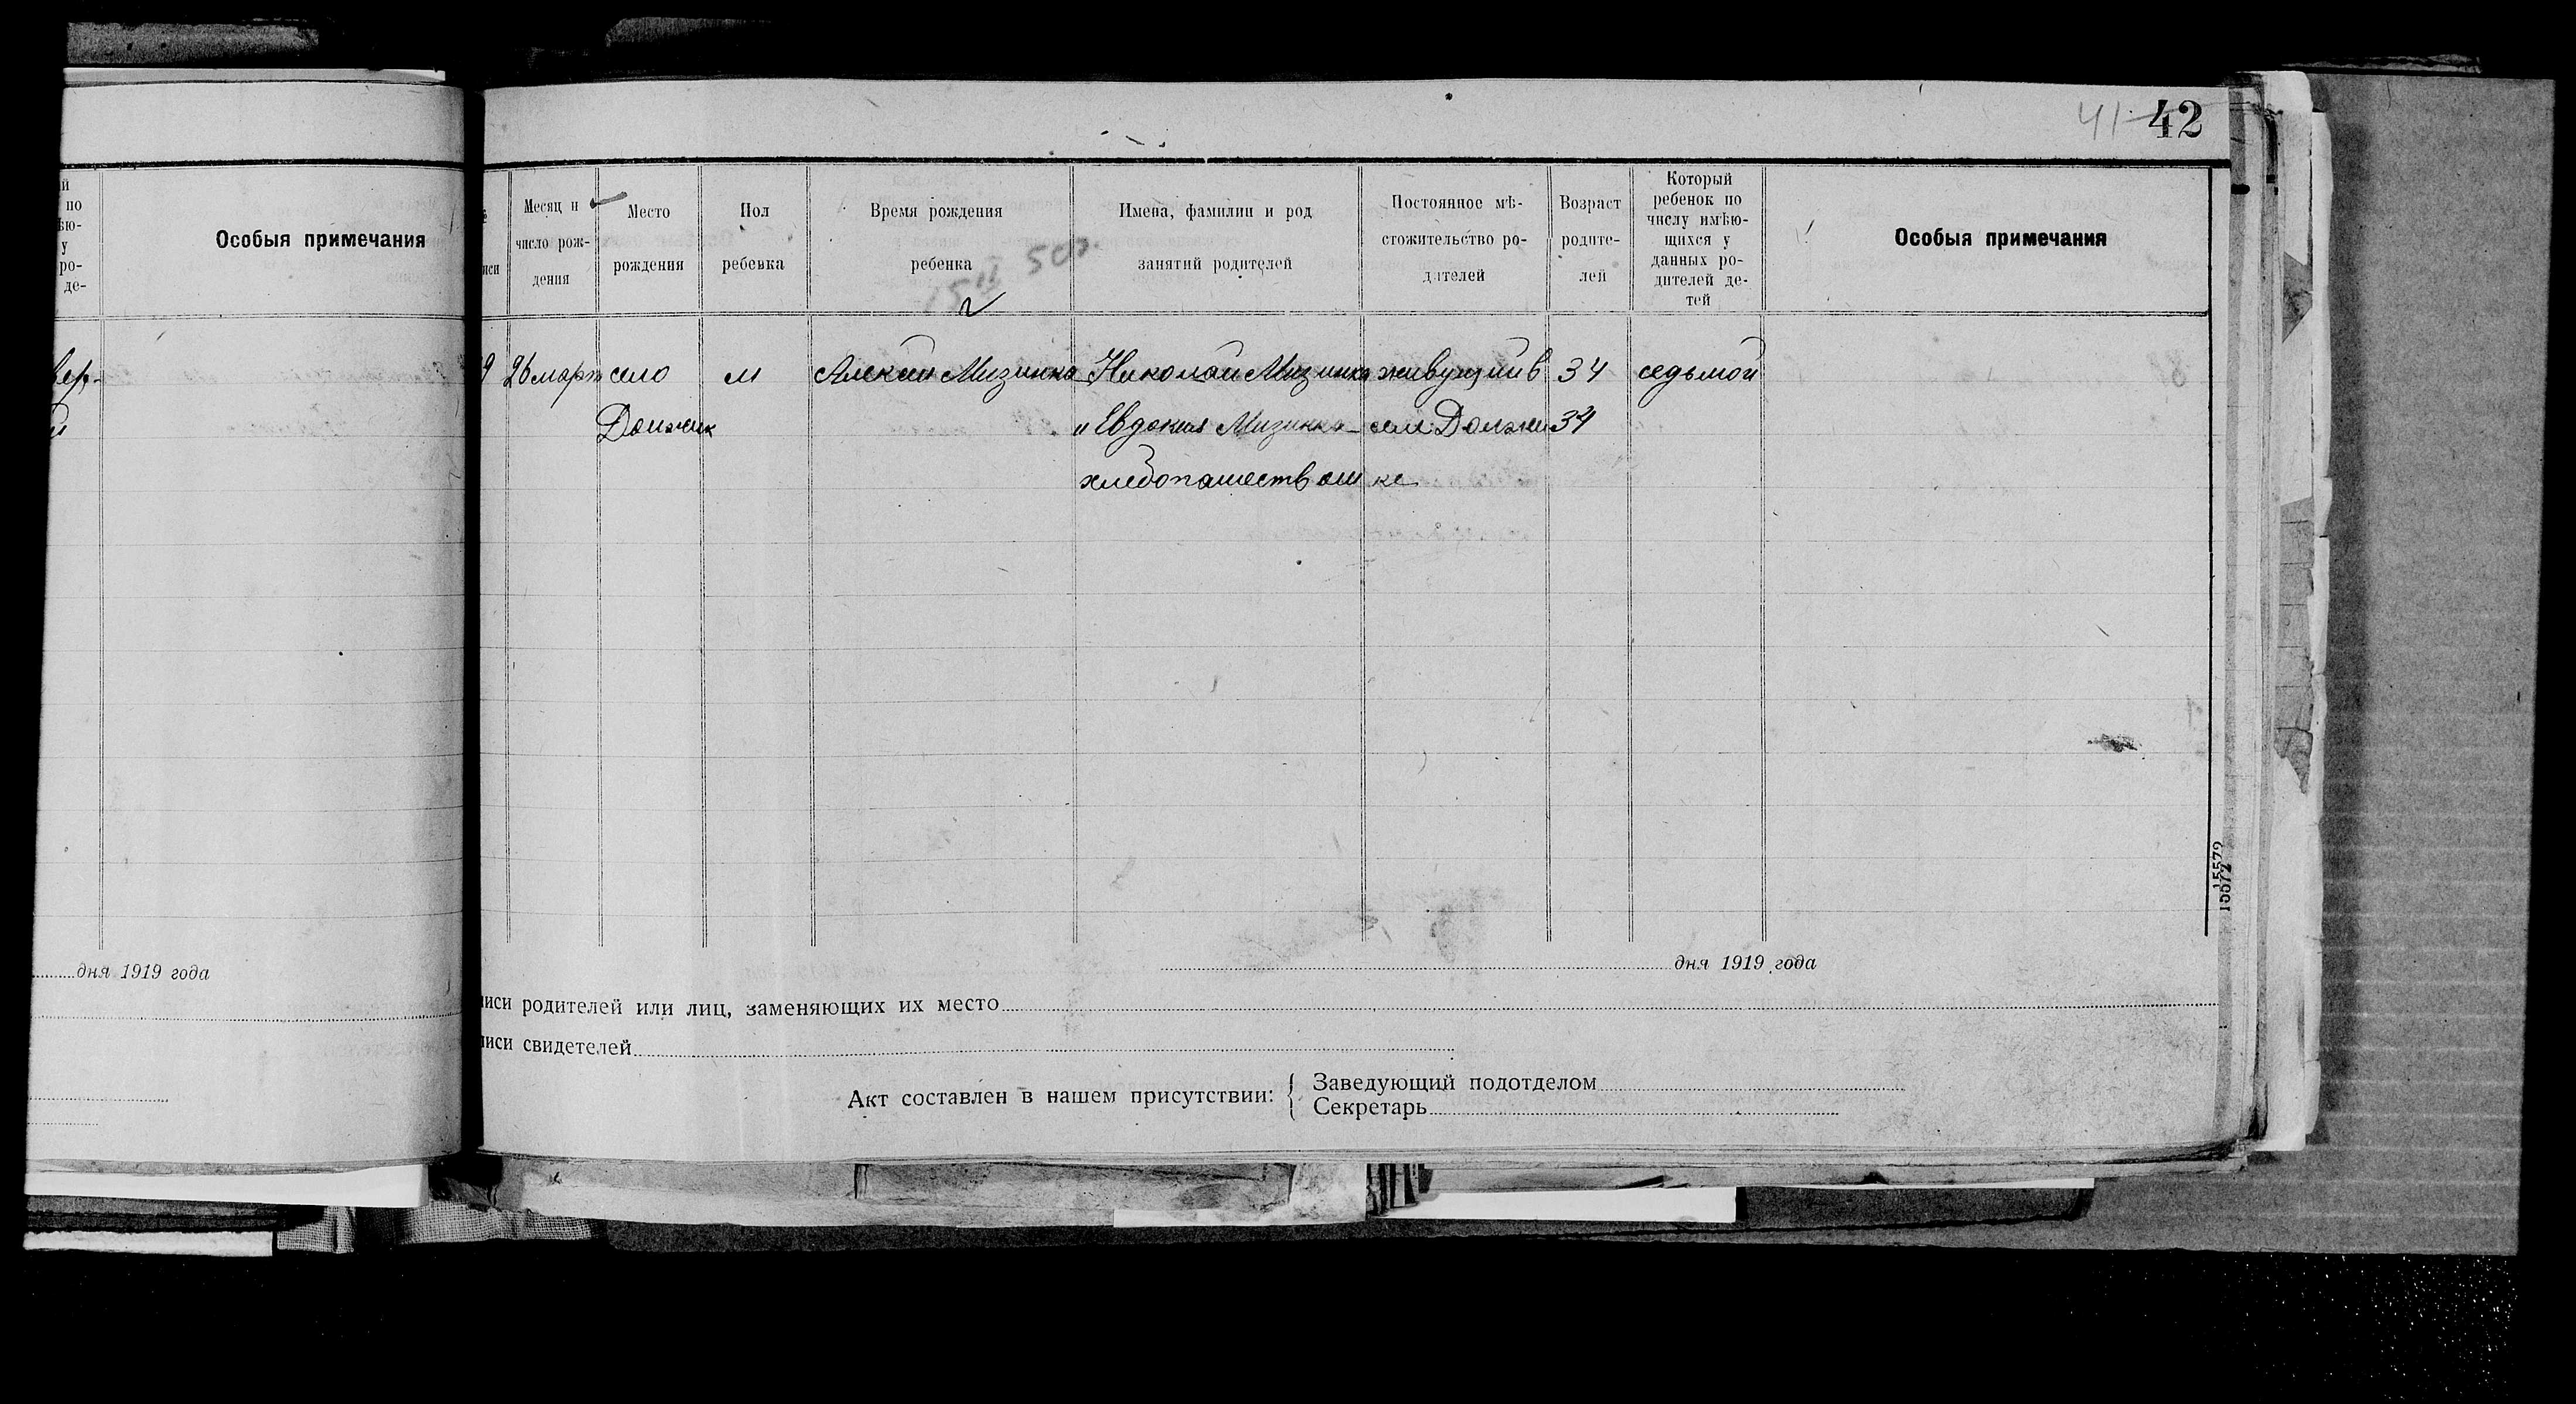 41 42
й
по
ѣю-
у
ро-
де-
Особыя примечания
вер-
й
дня 1919 года
иси
Месяц и
число рож-
дения
Место
рождения
Пол
ребенка
Время рождения
ребенка
15 II 50
Имена, фамилии и род
занятий родителей
Постоянное мѣ-
стожительство ро-
дителей
Возраст
родите-
лей
Который
ребенок по
числу имѣю-
щихся у
данных ро-
дителей де-
тей
Особыя примечания
9 26 март село м Алексей Мизинко Николай Мизинко живущий в 34 седьмой
Должик и Евдокия Мизинко селе Должи 34
хлебопашеством ке
дня 1919 года
иси родителей или лиц, заменяющих их место
иси свидетелей
Акт составлен в нашем присутствии:
Заведующий подотделом
Секретарь
15572